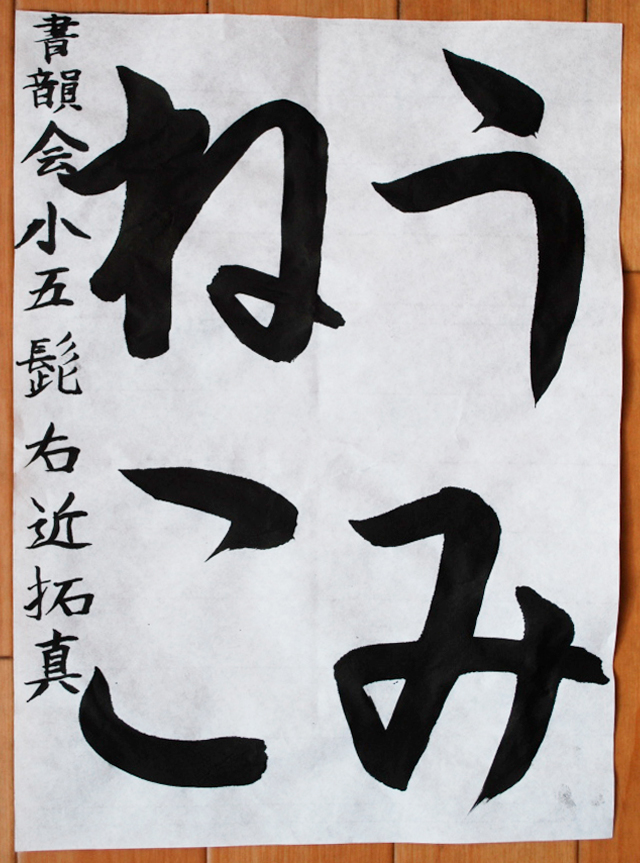 うみ
ねこ
書韻会小五髭右近拓真